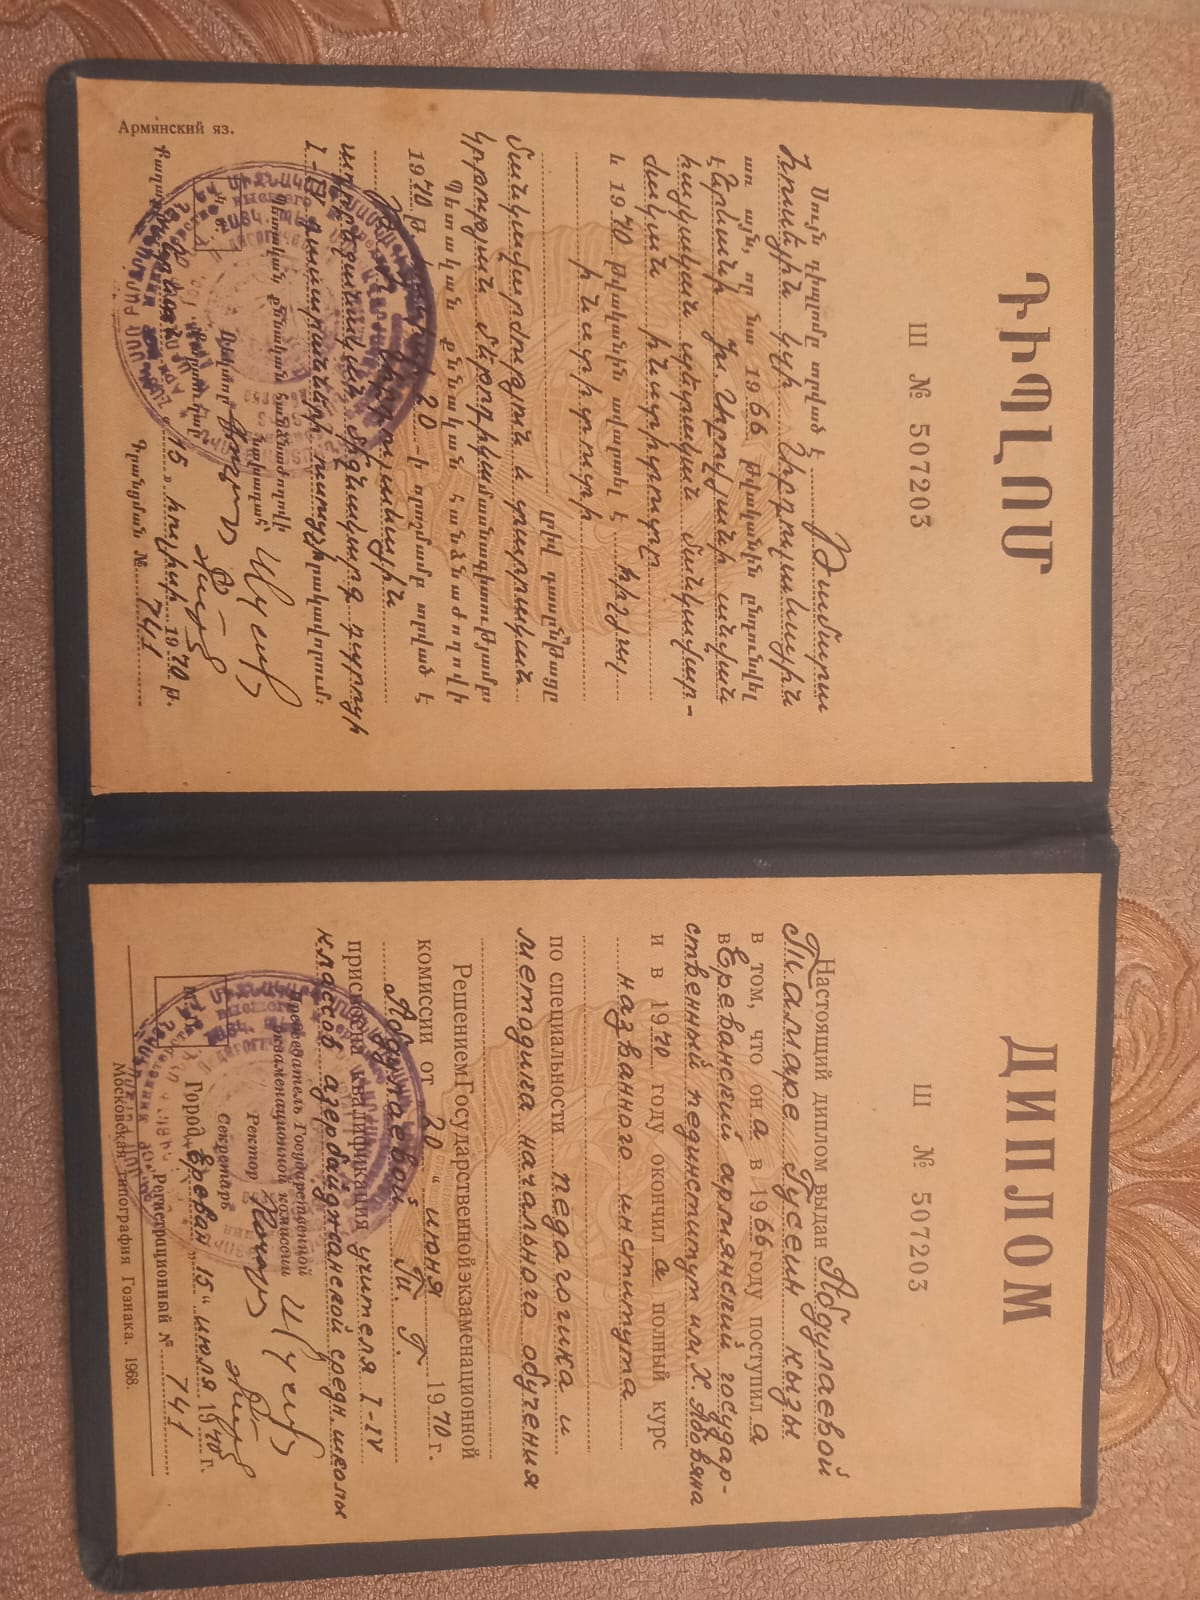 ԴԻՊԼՈՄ
Ш № 507203
Սույն դիպլոմը տրված է Թամարա
Հուսեյին կզի Աբդուլաևային
առ այն, որ նա 1966 թվականին ընդունվել
է Երևանի Խ. Աբովյանի անվան
հայկական պետական մանկավար-
ժական ինստիտուտը
և 1970 թվականին ավարտել է հիշյալ
ինստիտուտի
լրիվ դասընթացը
մանկավարժություն և տարրական
կրթության մեթոդիկա մասնագիտությամբ
Պետական քննական հանձնաժողովի
1970 թ. հունիսի 20-ի որոշմամբ տրված է
Աբդուլաևային
ադրբեջանական միջնակարգ դպրոցի
I-IV դասարանների ուսուցչի որակավորում:
Պետական քննական հանձնաժողովի
նախագահ՝
Ռեկտոր
Քարտուղար
Քաղաք Երևան „15„ հուլիսի 1970 թ.
Գրանցման № 741
Армянский яз.
ДИПЛОМ
Ш № 507203
Настоящий диплом выдан Абдулаевой
Тамаре Гусеин кызы
в том, что она в 1966 году поступила
в Ереванский армянский государ-
ственный пединститут им. Х. Абовяна
и в 1970 году окончила полный курс
названного института
по специальности педагогика и
методика начального обучения
Решением Государственной экзаменационной
комиссии от „20“ июня 1970 г.
Абдулаевой Т. Г.
присвоена квалификация учителя I-IV
классов азербайджанской средн. школы
Председатель Государственной
экзаменационной комиссии
Ректор
Секретарь
М. П.
Город Ереван „15“ июля 1970 г.
Регистрационный № 741
Московская типография Гознака. 1968.